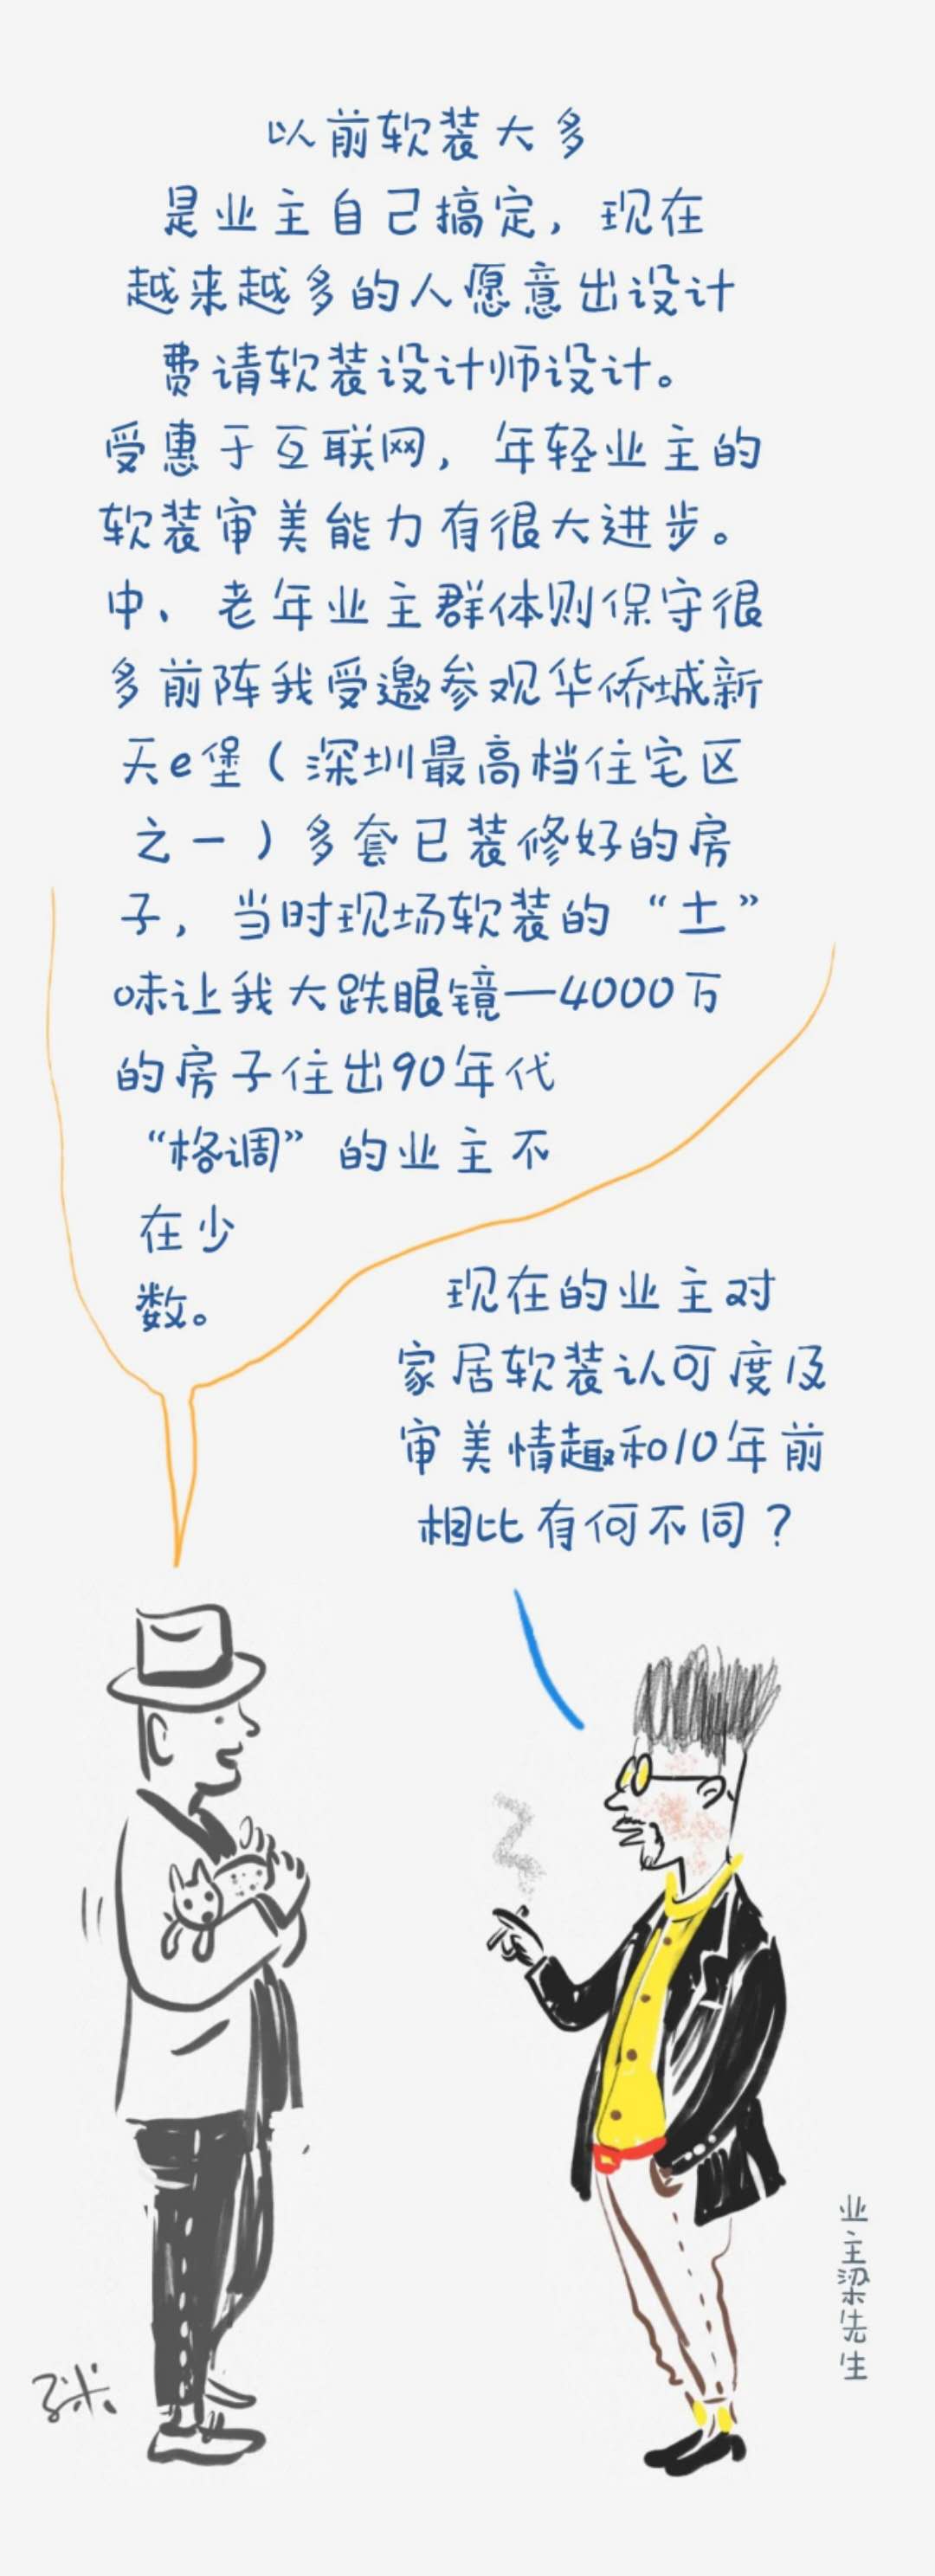 以前软装大多
是业主自己搞定，现在
越来越多的人愿意出设计
费请软装设计师设计。
受惠于互联网，年轻业主的
软装审美能力有很大进步。
中、老年业主群体则保守很
多前阵我受邀参观华侨城新
天e堡（深圳最高档住宅区
之一）多套已装修好的房
子，当时现场软装的“土”
味让我大跌眼镜—4000万
的房子住出90年代
“格调”的业主不
在少
数。
现在的业主对
家居软装认可度及
审美情趣和10年前
相比有何不同？
业主梁先生